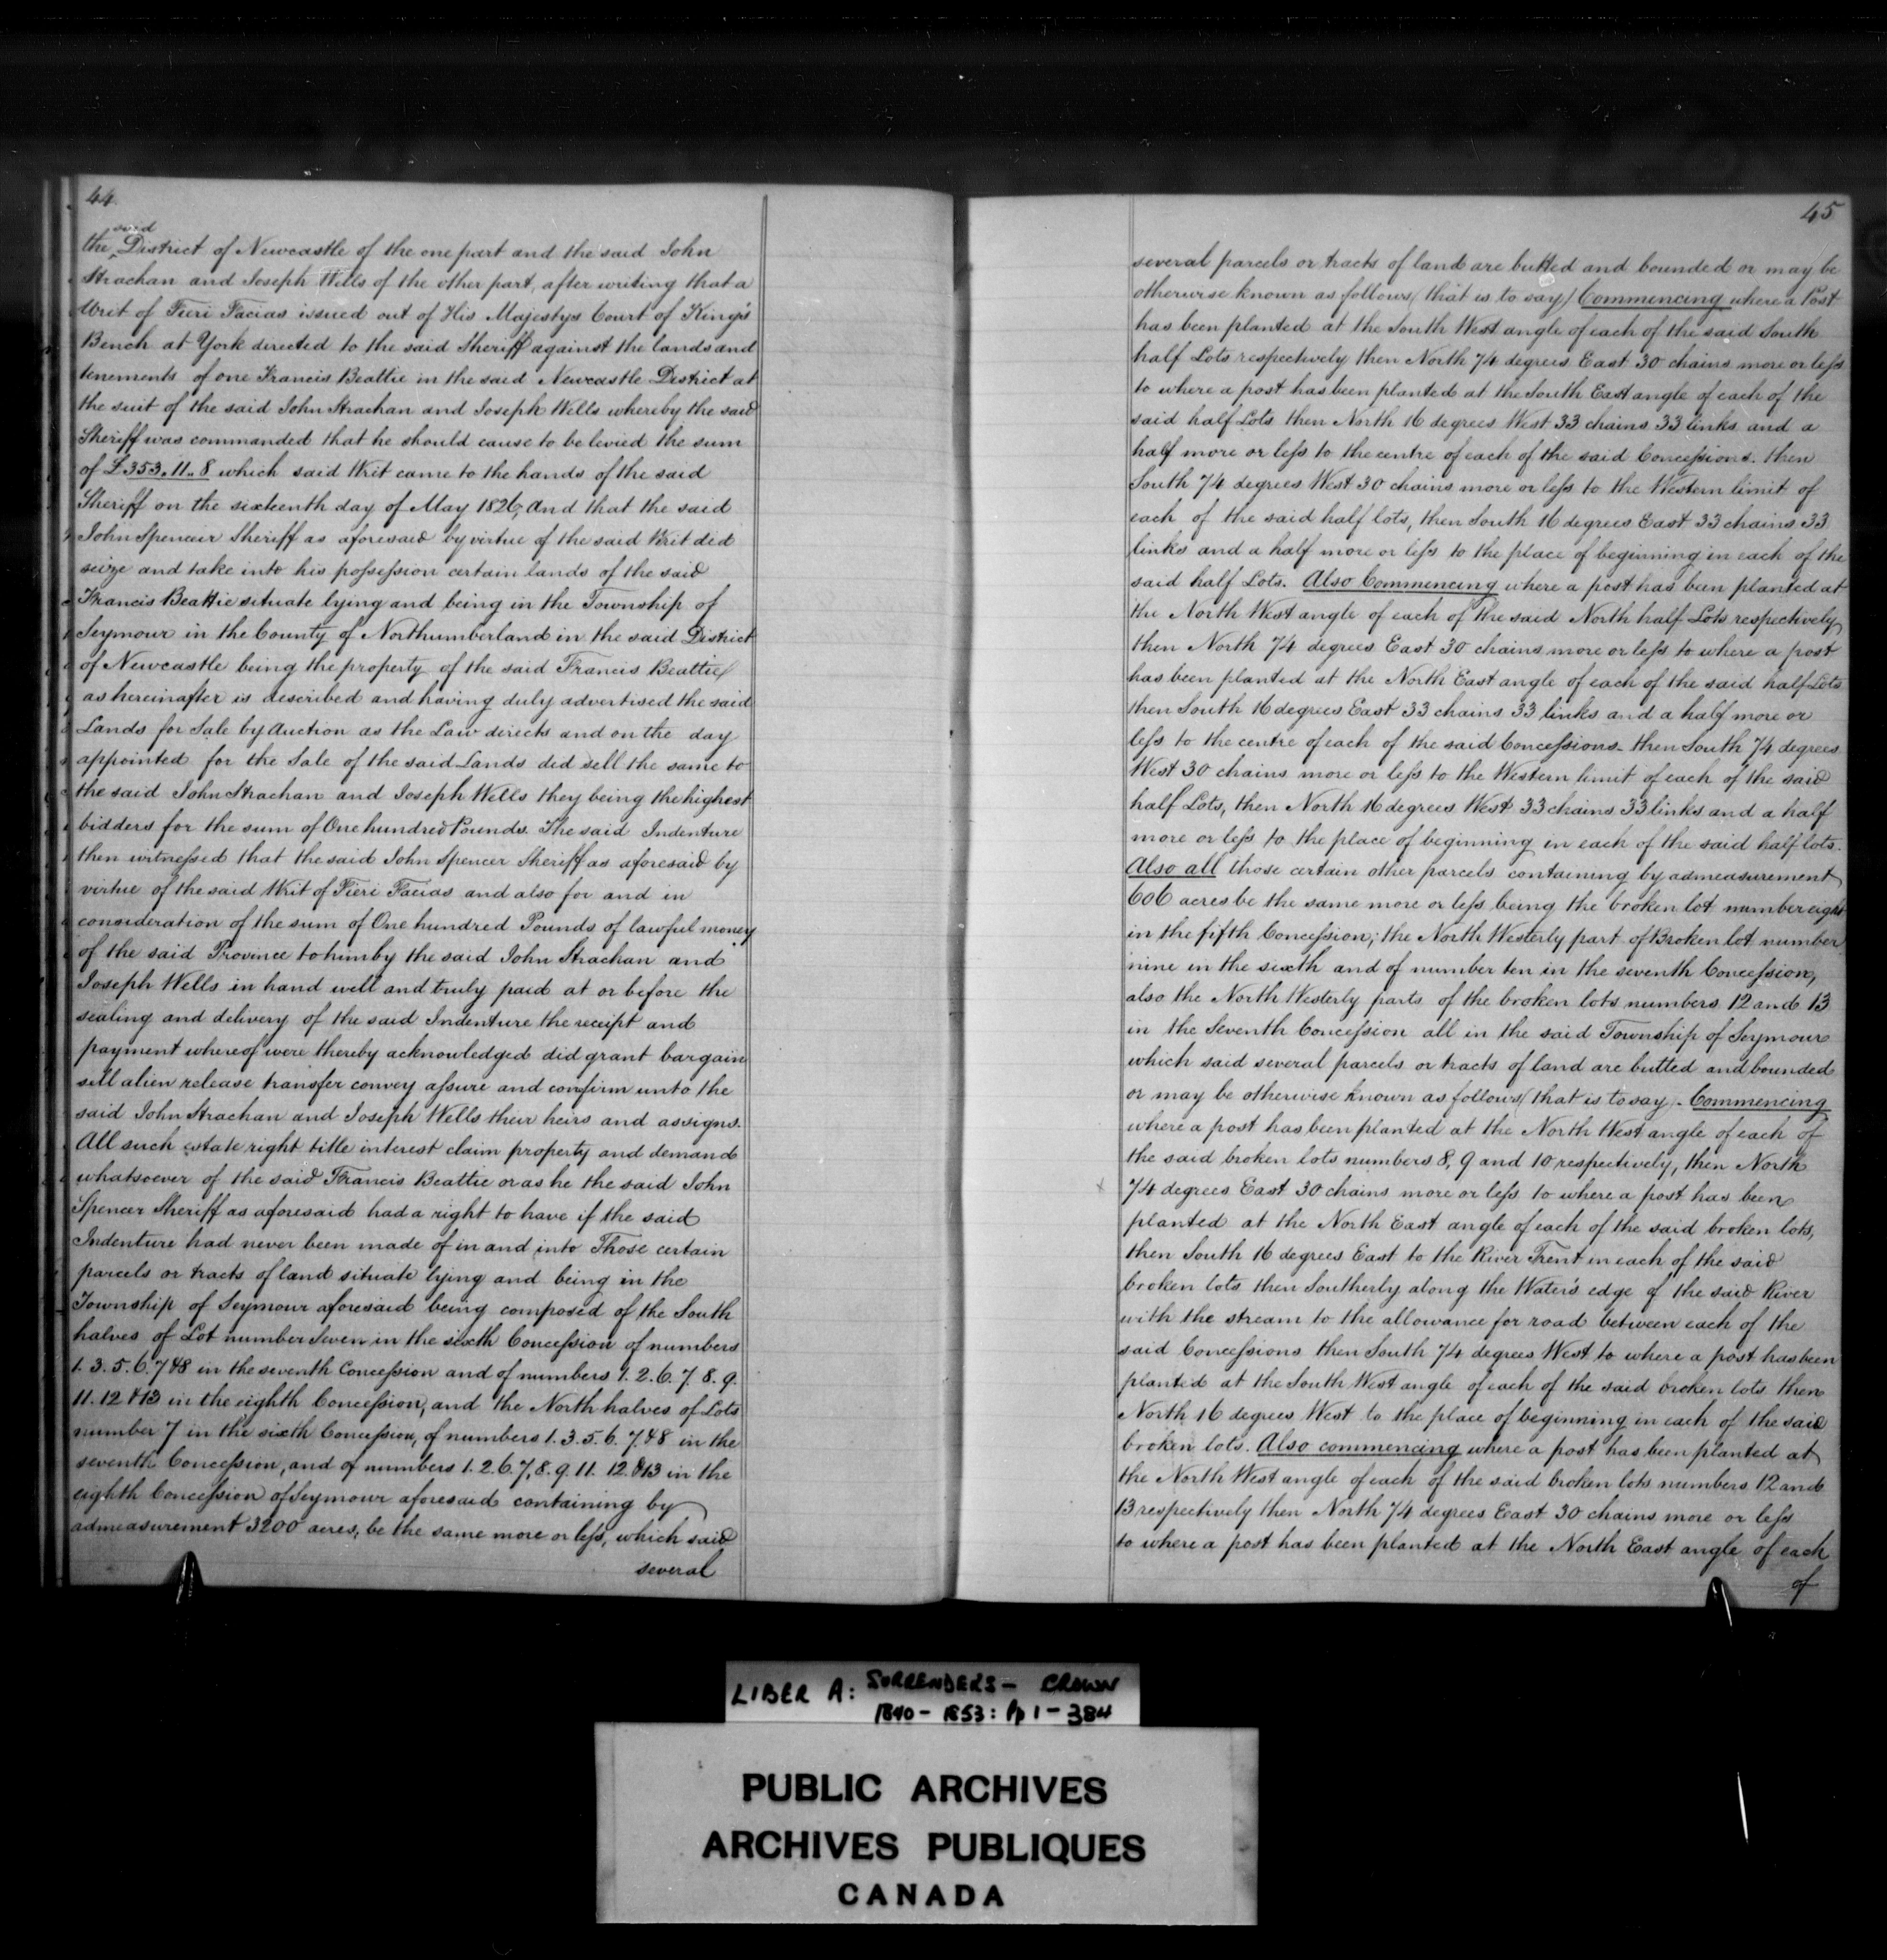 44
the said District of Newcastle of the one part and the said John
Strachan and Joseph Wells of the other part, after writing that a
Writ of Fieri Facias issued out of His Majestys Court of King's
Bench at York directed to the said Sheriff against the lands and
tenements of one Francis Beattie in the said Newcastle District at
the suit of the said John Strachan and Joseph Wells whereby the said
Sheriff was commanded that he should cause to be levied the sum
of £353.11.8 which said Writ came to the hands of the said
Sheriff on the sixteenth day of May 1826, and that the said
John Spencer Sheriff as aforesaid by virtue of the said Writ did
seize and take into his possession certain lands of the said
Francis Beattie situate lying and being in the Township of
Seymour in the County of Northumberland in the said District
of Newcastle being the property of the said Francis Beattie
as hereinafter is described and having duly advertised the said
Lands for Sale by Auction as the Law directs and on the day
appointed for the Sale of the said Lands did sell the same to
the said John Strachan and Joseph Wells they being the highest
bidders for the sum of One hundred Pounds. The said Indenture
then witnessed that the said John Spencer Sheriff as aforesaid by
virtue of the said Writ of Fieri Facias and also for and in
consideration of the sum of One hundred Pounds of lawful money
of the said Province to him by the said John Strachan and
Joseph Wells in hand well and truly paid at or before the
sealing and delivery of the said Indenture the receipt and
payment whereof were thereby acknowledged did grant bargain
sell alien release transfer convey assure and confirm unto the
said John Strachan and Joseph Wells their heirs and assigns.
All such estate right title interest claim property and demand
whatsoever of the said Francis Beattie or as he the said John
Spencer Sheriff as aforesaid had a right to have if the said
Indenture had never been made of in and into Those certain
parcels or tracts of land situate lying and being in the
Township of Seymour aforesaid being composed of the South
halves of Lot number Seven in the sixth Concession of numbers
1. 3. 5. 6. 7 & 8 in the seventh Concession and of numbers 1. 2. 6. 7. 8. 9.
11. 12 & 13 in the eighth Concession, and the North halves of Lots
number 7 in the sixth Concession, of numbers 1. 3. 5. 6. 7. & 8 in the
seventh Concession, and of numbers 1. 2. 6. 7, 8. 9. 11. 12. & 13 in the
eighth Concession of Seymour aforesaid containing by
admeasurement 3200 acres, be the same more or less, which said
several
45
several parcels or tracts of land are butted and bounded or may be
otherwise known as follows (that is to say) Commencing where a Post
has been planted at the South West angle of each of the said South
half Lots respectively then North 74 degrees East 30 chains more or less
to where a post has been planted at the South East angle of each of the
said half Lots then North 16 degrees West 33 chains 33 links and a
half more or less to the centre of each of the said Concessions. then
South 74 degrees West 30 chains more or less to the Western limit of
each of the said half lots, then South 16 degrees East 33 chains 33
links and a half more or less to the place of beginning in each of the
said half Lots. Also Commencing where a post has been planted at
the North West angle of each of the said North half Lots respectively
then North 74 degrees East 30 chains more or less to where a post
has been planted at the North East angle of each of the said half Lots
then South 16 degrees East 33 chains 33 links and a half more or
less to the centre of each of the said Concessions then South 74 degrees
West 30 chains more or less to the Western limit of each of the said
half Lots, then North 16 degrees West 33 chains 33 links and a half
more or less to the place of beginning in each of the said half lots.
Also all those certain other parcels containing by admeasurement
606 acres be the same more or less being the broken lot number eight
in the fifth Concession; the North Westerly part of Broken lot number
nine in the sixth and of number ten in the seventh Concession,
also the North Westerly parts of the broken lots numbers 12 and 13
in the Seventh Concession all in the said Township of Seymour
which said several parcels or tracts of land are butted and bounded
or may be otherwise known as follows (that is to say) - Commencing
where a post has been planted at the North West angle of each of
the said broken lots numbers 8, 9 and 10 respectively, then North
x 74 degrees East 30 chains more or less to where a post has been
planted at the North East angle of each of the said broken lots,
then South 16 degrees East to the River Trent in each of the said
broken lots then Southerly along the Water's edge of the said River
with the stream to the allowance for road between each of the
said Concessions then South 74 degrees West to where a post has been
planted at the South West angle of each of the said broken lots then
North 16 degrees West to the place of beginning in each of the said
broken lots. Also commencing where a post has been planted at
the North West angle of each of the said broken lots numbers 12 and
13 respectively then North 74 degrees East 30 chains more or less
to where a post has been planted at the North East angle of each
of
LIBER A: SURRENDERS - CROWN
1840 - 1853: Pp 1 - 384
PUBLIC ARCHIVES
ARCHIVES PUBLIQUES
CANADA